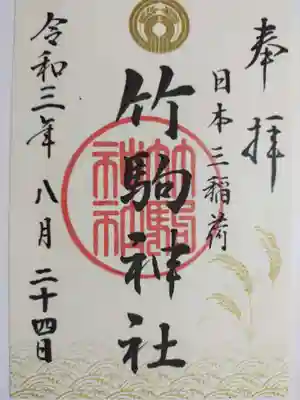 奉拝
日本三稲荷
竹駒神社
竹駒神社
令和三年八月二十四日